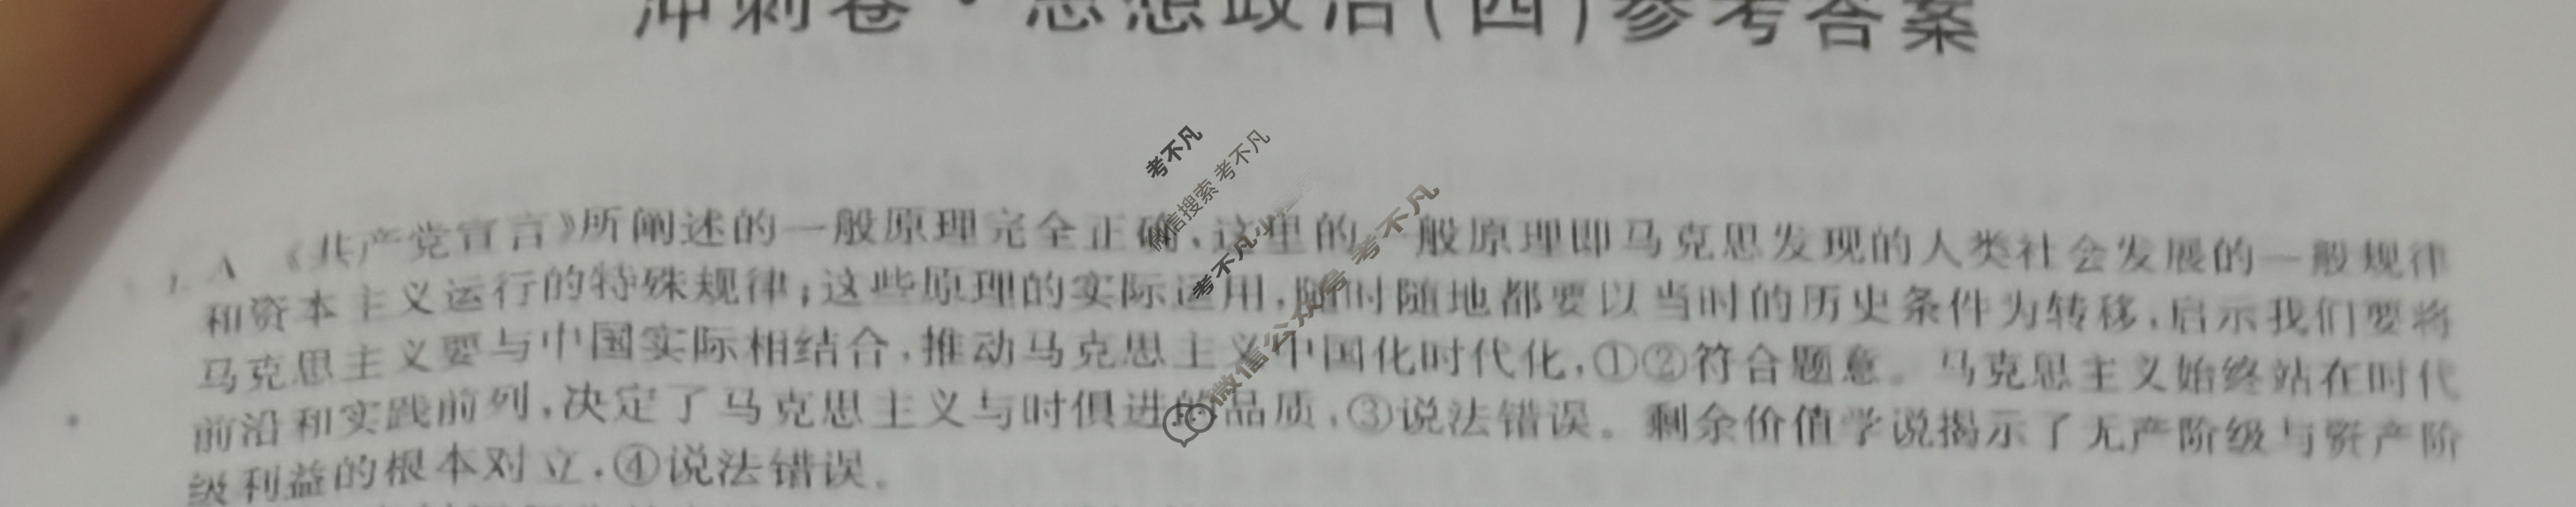 冲刺卷·思想政治(四)参考答案
考不凡
微信搜索 考不凡
考不凡
微信公众号 考不凡
1. A 《共产党宣言》所阐述的一般原理完全正确,这里的一般原理即马克思发现的人类社会发展的一般规律
和资本主义运行的特殊规律;这些原理的实际运用,随时随地都要以当时的历史条件为转移,启示我们要将
马克思主义要与中国实际相结合,推动马克思主义中国化时代化,①②符合题意。马克思主义始终站在时代
前沿和实践前列,决定了马克思主义与时俱进的品质,③说法错误。剩余价值学说揭示了无产阶级与资产阶
级利益的根本对立,④说法错误。